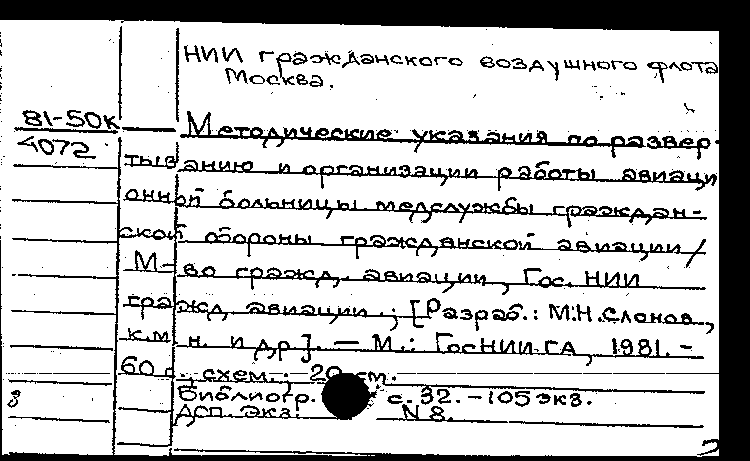 НИИ гражданского воздушного флота
Москва.
81-50к
4072
Методические указания по развер-
тыванию и организации работы авиаци
онной больницы медслужбы граждан-
ской обороны гражданской авиации/
М-во гражд. авиации, Гос. НИИ
гражд. авиации.; [Разраб.: М.Н.Слонов,
к.м.н. и др]. — М.: ГосНИИ ГА, 1981. -
60 с., схем.; 20 см.
Библиогр. с. 32. - 105 экз.
ДСП. Экз. N 8.